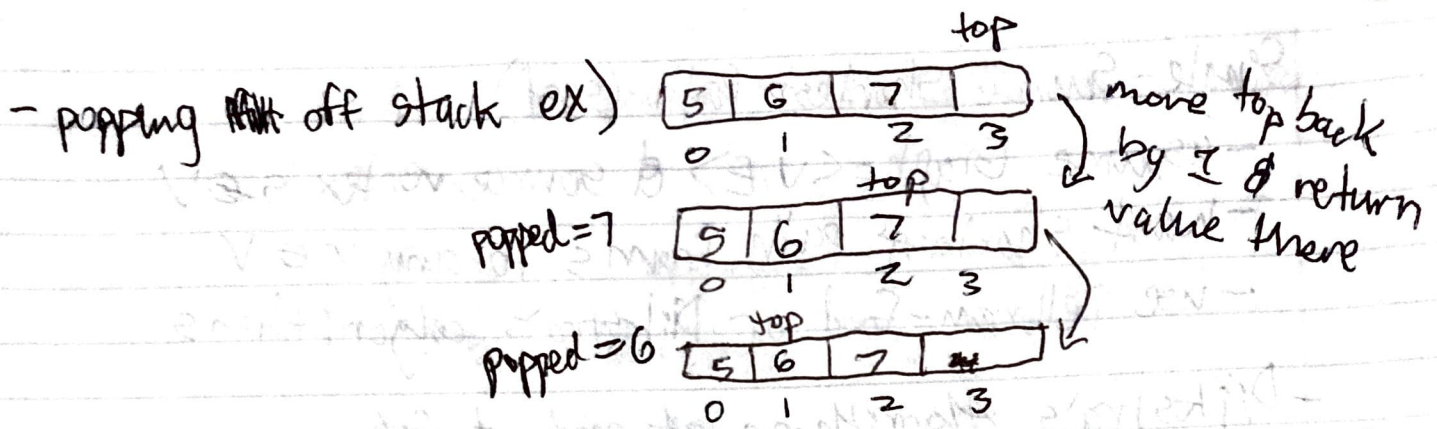 top
- popping off stack ex) 5 6 7
0 1 2 3
move top back
by 1 & return
value there
top
popped=7 5 6 7
0 1 2 3
top
popped=6 5 6 7
0 1 2 3